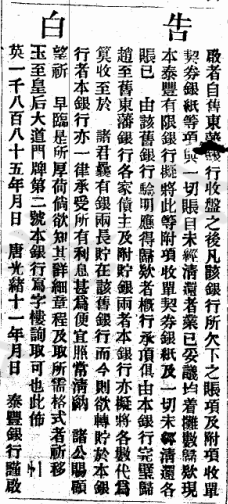 告白
啟者自舊東藩銀行收盤之後凡該銀行所欠下之賬項及附項收單
契券銀紙等項與一切賬目未經清還者業已妥議均着攤數賬欵現
本泰豐有限銀行擬將此等附項收單契券銀紙及一切未經清還各
賬已 由該舊銀行驗明應得賬欵者概行承頂俱由本銀行完璧歸
趙至舊東藩銀行各家債主及附貯銀兩者本銀行亦擬將各數代為
算收至於 諸君曩有銀兩長貯在該舊銀行而今則欲轉貯於本銀
行者本銀行亦一律承受所有利息甚為便宜照常清納 諸公賜顧
望祈 早臨是所厚荷倘欲知其詳細章程及取所需格式者祈移
玉至皇后大道門牌第二號本銀行寫字樓詢取可也此佈
英一千八百八十五年月日 唐光緒十一年月日 泰豐銀行謹啟